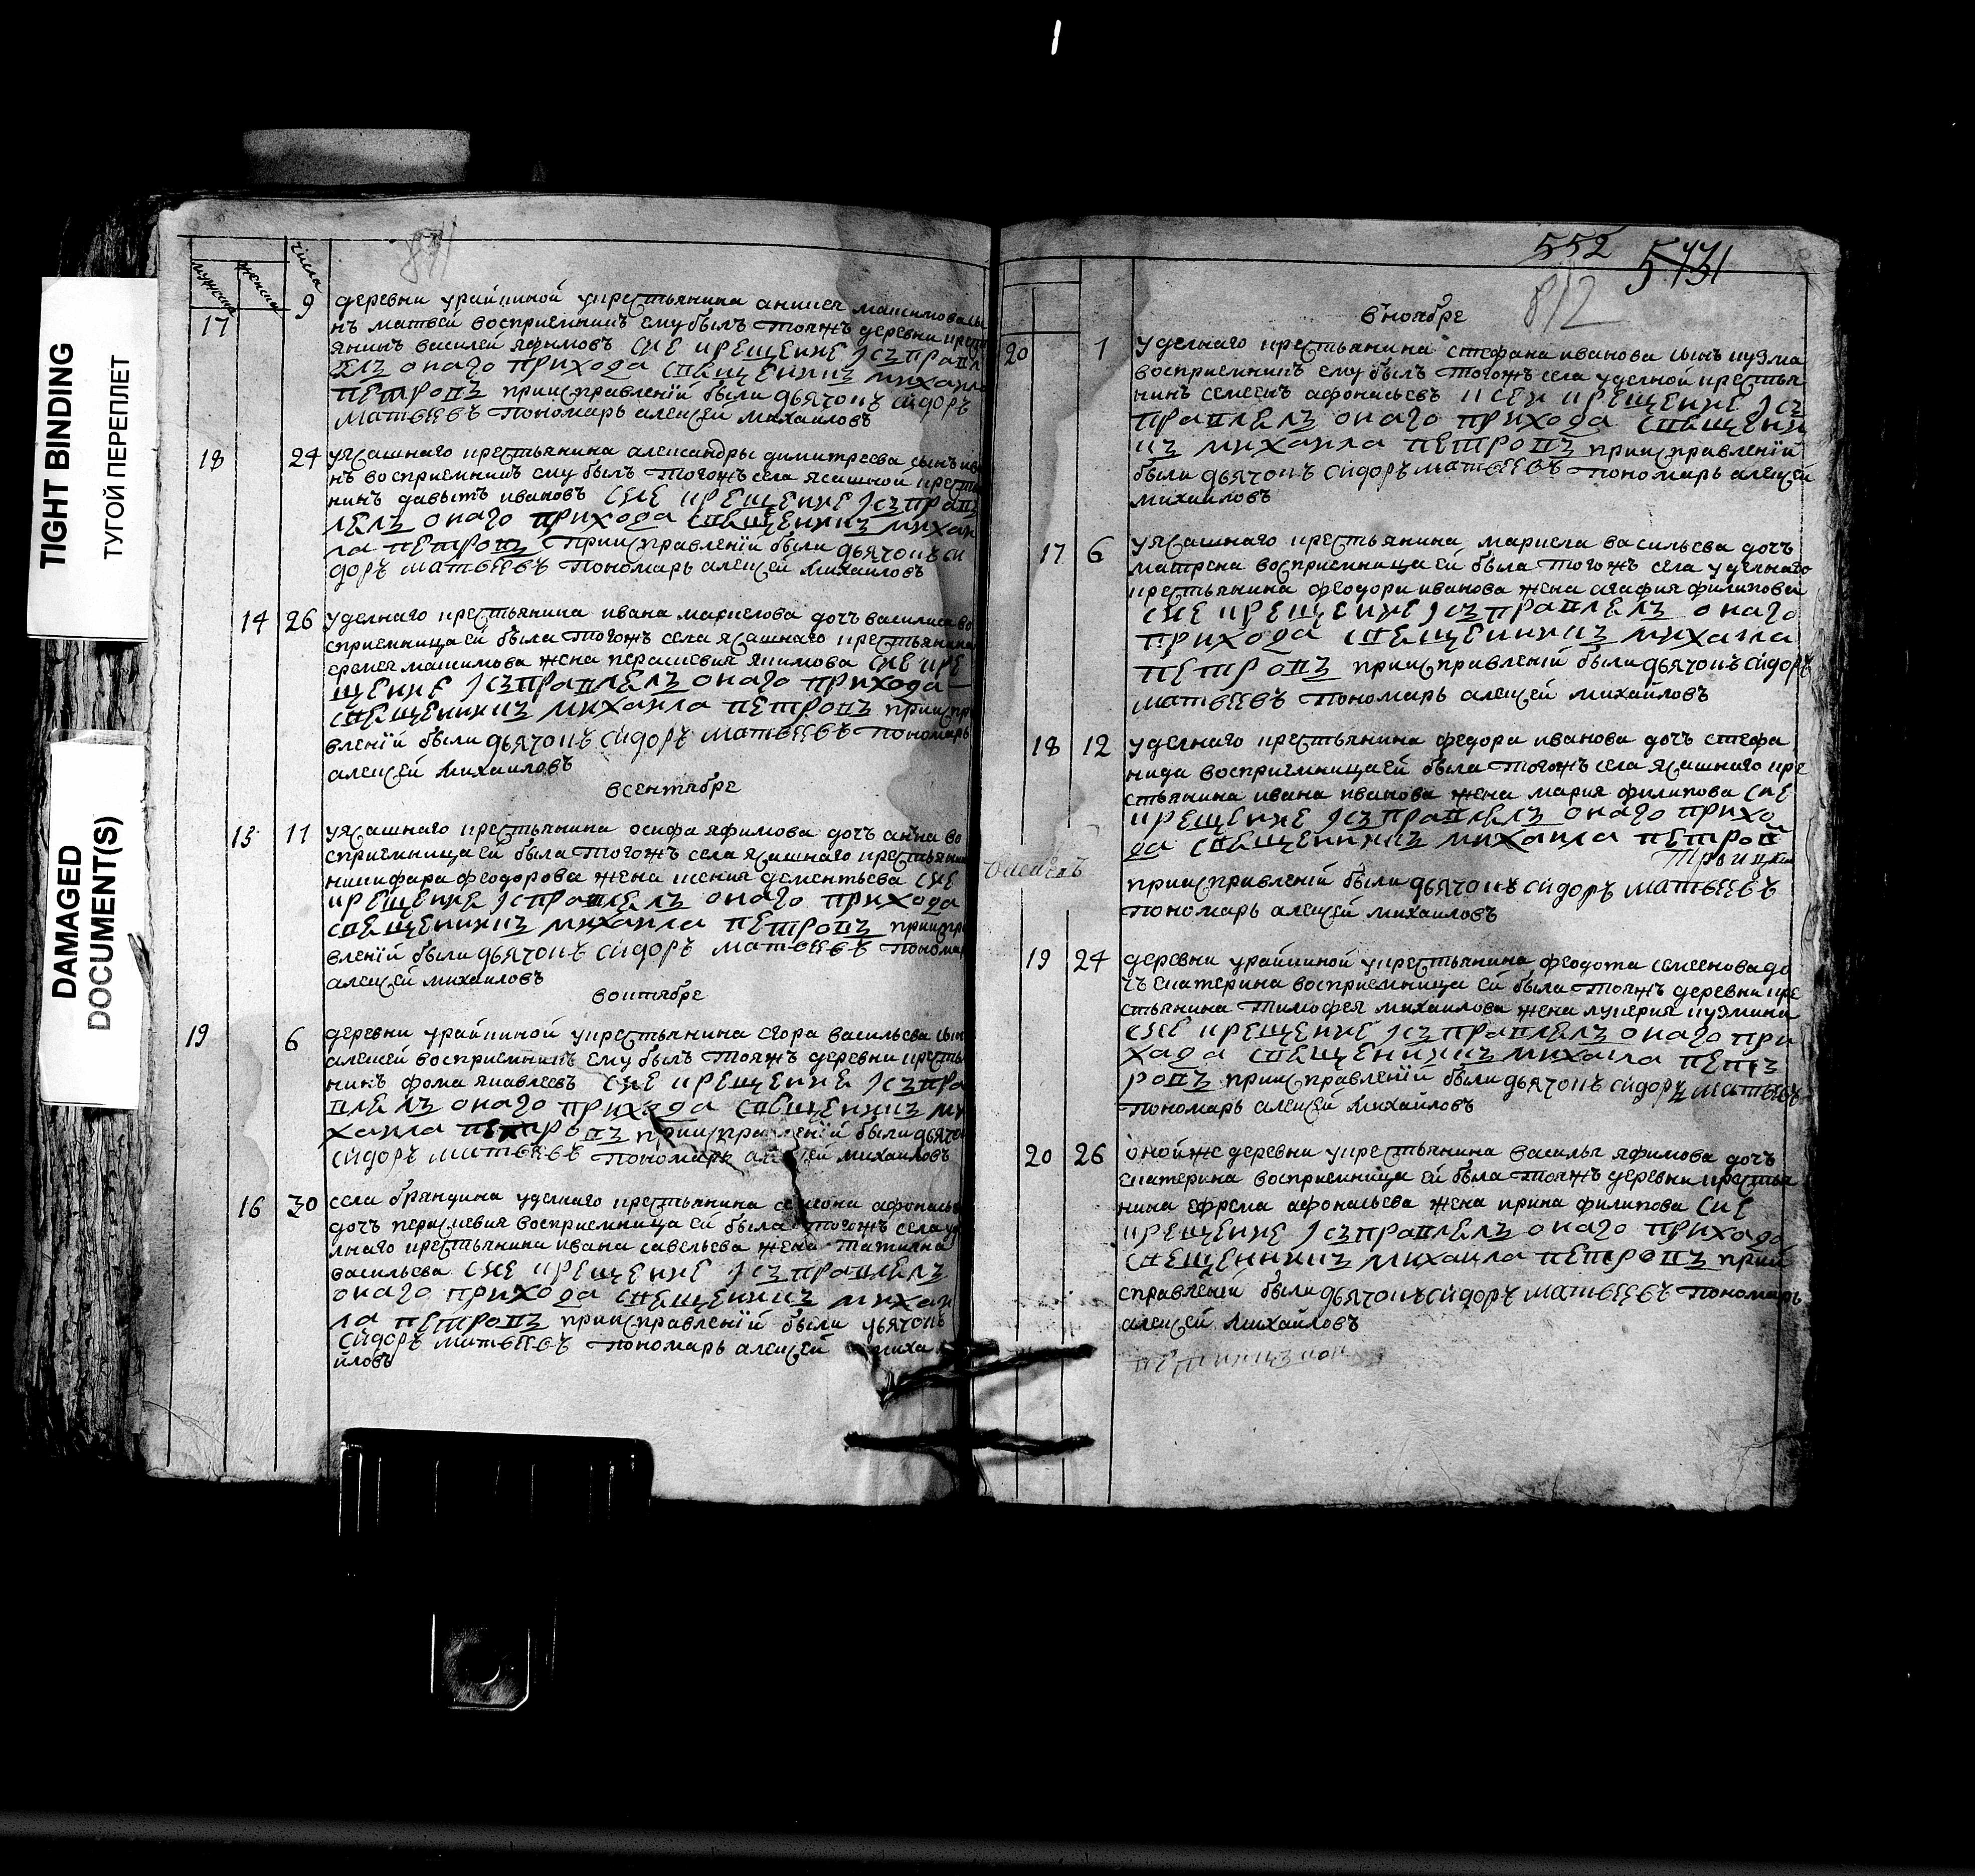 TIGHT BINDING
ТУГОЙ ПЕРЕПЛЕТ
DAMAGED
DOCUMENT(S)
мужеска женска числа
811
17 9 деревни урайкиной у крестьянина
нъ матвей восприемникъ ему былъ тояжъ деревни
янинъ василей яфимовъ сие крещение исправ
лѣ онаго прихода священникъ михаила
петровъ при исправлении были дьячокъ сидоръ
матвеевъ пономарь алексей михаиловъ
18 24 у ясашнаго крестьянина александры димитреева сынъ
нъ восприемникъ ему былъ тогожъ села ясашной
нинъ давытъ ивановъ сие крещение исправ
лялъ онаго прихода священникъ михаи
ла петровъ при исправлении были дьячокъ си
доръ матвеевъ пономарь алексей михаиловъ
14 26 уделнаго крестьянина ивана маркелова дочь василиса во
сприемница ей была тогожъ села ясашнаго крестьянина
еремея макимова жена перасковия якимова сие кре
щение исправлялъ онаго прихода
священникъ михаила петровъ при испра
влении были дьячокъ сидоръ матвеевъ пономарь
алексей михаиловъ
в сентябре
15 11 у ясашнаго крестьянина осифа яфимова дочь анна во
сприемница ей была тогожъ села ясашнаго
никифара феодорова жена ксения дементьева сие
крещение исправлялъ онаго прихода
священникъ михаила петровъ при испра
влении были дьячокъ сидоръ матвеевъ
алексей михаиловъ
в октябре
19 6 деревни урайкиной у крестьянина егора васильева сынъ
алексей восприемникъ ему былъ тояжъ деревни
нинъ фома яковлевъ сие крещение испра
влялъ онаго прихода священникъ ми
хаила петровъ при исправлении были
сидоръ матвеевъ пономарь алексей михаиловъ
16 30 села бряндина уделнаго крестьянина семиона
дочь перасковия восприемница ей была тогожъ села уде
лнаго крестьянина ивана савельева жена татиана
васильева сие крещение исправлялъ
онаго прихода священникъ михаи
ла петровъ при исправлении были дьячокъ
сидоръ матвеевъ пономарь алексей миха
иловъ
552 5731
812
в ноябре
20 1 уделнаго крестьянина стефана иванова сынъ кузма
восприемникъ ему былъ тогожъ села уделной крестья
нинъ семенъ афонасьевъ и сеи крещение ис
правлялъ онаго прихода священни
къ михаила петровъ при исправлении
были дьячокъ сидоръ матвеевъ пономарь алексей
михаиловъ
17 6 у ясашнаго крестьянина маркела васильева дочь
матрена восприемница ей была тогожъ села уделнаго
крестьянина феодора иванова жена агафия филипова
сие крещение исправлялъ онаго
прихода священникъ михаила
петровъ при исправлении были дьячокъ сидоръ
матвеевъ пономарь алексей михаиловъ
18 12 уделнаго крестьянина федора иванова дочь стефа
нида восприемница ей была тогожъ села ясашнаго кре
стьянина ивана иванова жена мария филипова сие
крещение исправлялъ онаго прихо
да священникъ михаила петров
при исправлении были дьячокъ сидоръ матвеевъ
пономарь алексей михаиловъ
19 24 деревни урайкиной у крестьянина феодота семенова до
чь екатерина восприемница ей была тояжъ деревни кре
стьянина тимофея михаилова жена лукерия кузмина
сие крещение исправлялъ онаго при
хада священникъ михаила петъ
ровъ при исправлении были дьячокъ сидоръ матвеевъ
пономарь алексей михаиловъ
20 26 оной же деревни у крестьянина василья яфимова дочь
екатерина восприемница ей была тояжъ деревни крестья
нина ефрема афонасьева жена ирина филипова сие
крещение исправлялъ онаго прихода
священникъ михаила петровъ при и
справлении были дьячокъ сидоръ матвеевъ пономарь
алексей михаиловъ